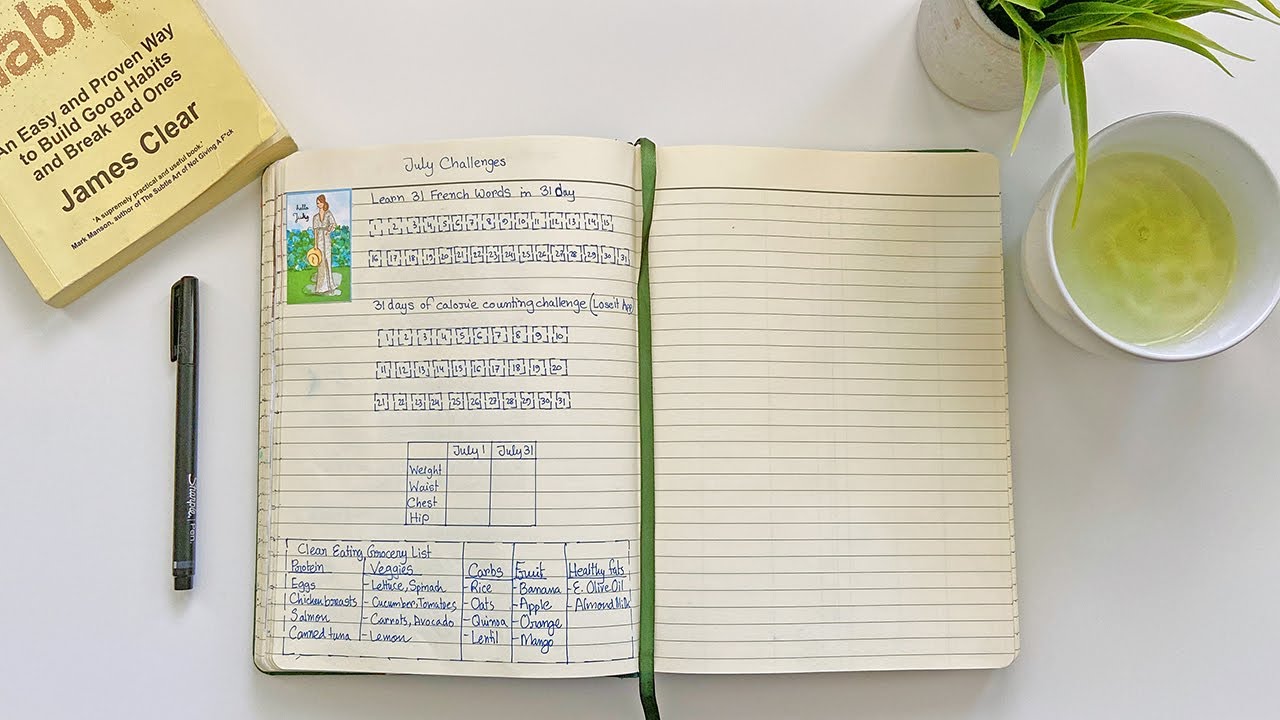 abit
An Easy and Proven Way
to Build Good Habits
and Break Bad Ones
James Clear
'A supremely practical and useful book.'
Mark Manson, author of The Subtle Art of Not Giving A F*ck
Sharpie Pen
July Challenges
hello
July
Learn 31 French Words in 31 day
1 2 3 4 5 6 7 8 9 10 11 12 13 14 15
16 17 18 19 20 21 22 23 24 25 26 27 28 29 30 31
31 days of calorie counting challenge (LoseIt App)
1 2 3 4 5 6 7 8 9 10
11 12 13 14 15 16 17 18 19 20
21 22 23 24 25 26 27 28 29 30 31
July 1 July 31
Weight
Waist
Chest
Hip
Clean Eating Grocery List
Protein Veggies Carbs Fruit Healthy fats
Eggs - Lettuce, Spinash - Rice - Banana - E. Olive Oil
Chicken breasts - Cucumber, Tomatoes - Oats - Apple - Almond Milk
Salmon - Carrots, Avocado - Quinoa - Orange
Canned tuna - Lemon - Lentil - Mango